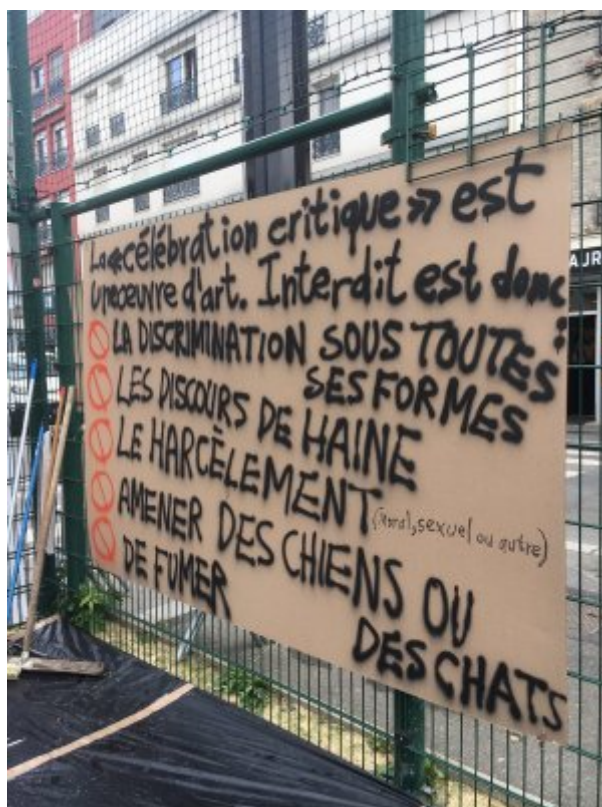 La «célébration critique» est
une œuvre d'art. Interdit est donc :
LA DISCRIMINATION SOUS TOUTES
SES FORMES
LES DISCOURS DE HAINE
LE HARCÈLEMENT (moral, sexuel ou autre)
AMENER DES CHIENS OU
DES CHATS
DE FUMER